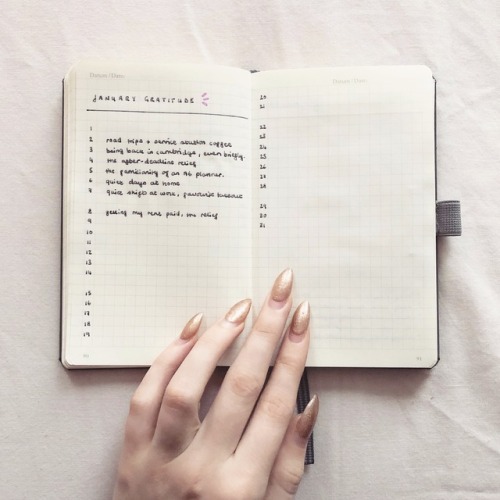 Datum / Date:
JANUARY GRATITUDE
1
2 road trips + service station coffee
3 being back in cambridge, even briefly.
4 the after-deadline relief
5 the familiarity of an A6 planner.
6 quiet days at home
7 quiet shifts at work, favourite
8 getting my rent paid, the relief
9
10
11
12
13
14
15
16
17
18
19
90
Datum / Date:
20
21
22
23
24
25
26
27
28
29
30
31
91